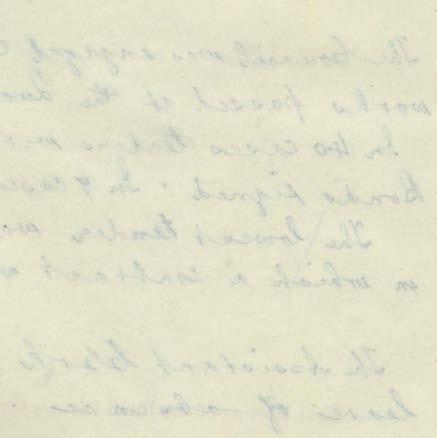 The Council was engaged
works passed at the
In 40 cases tenders were
Bonds signed. In 9 cases
The lowest tender
in which a contract
The Assistant Clerk
leave of absence